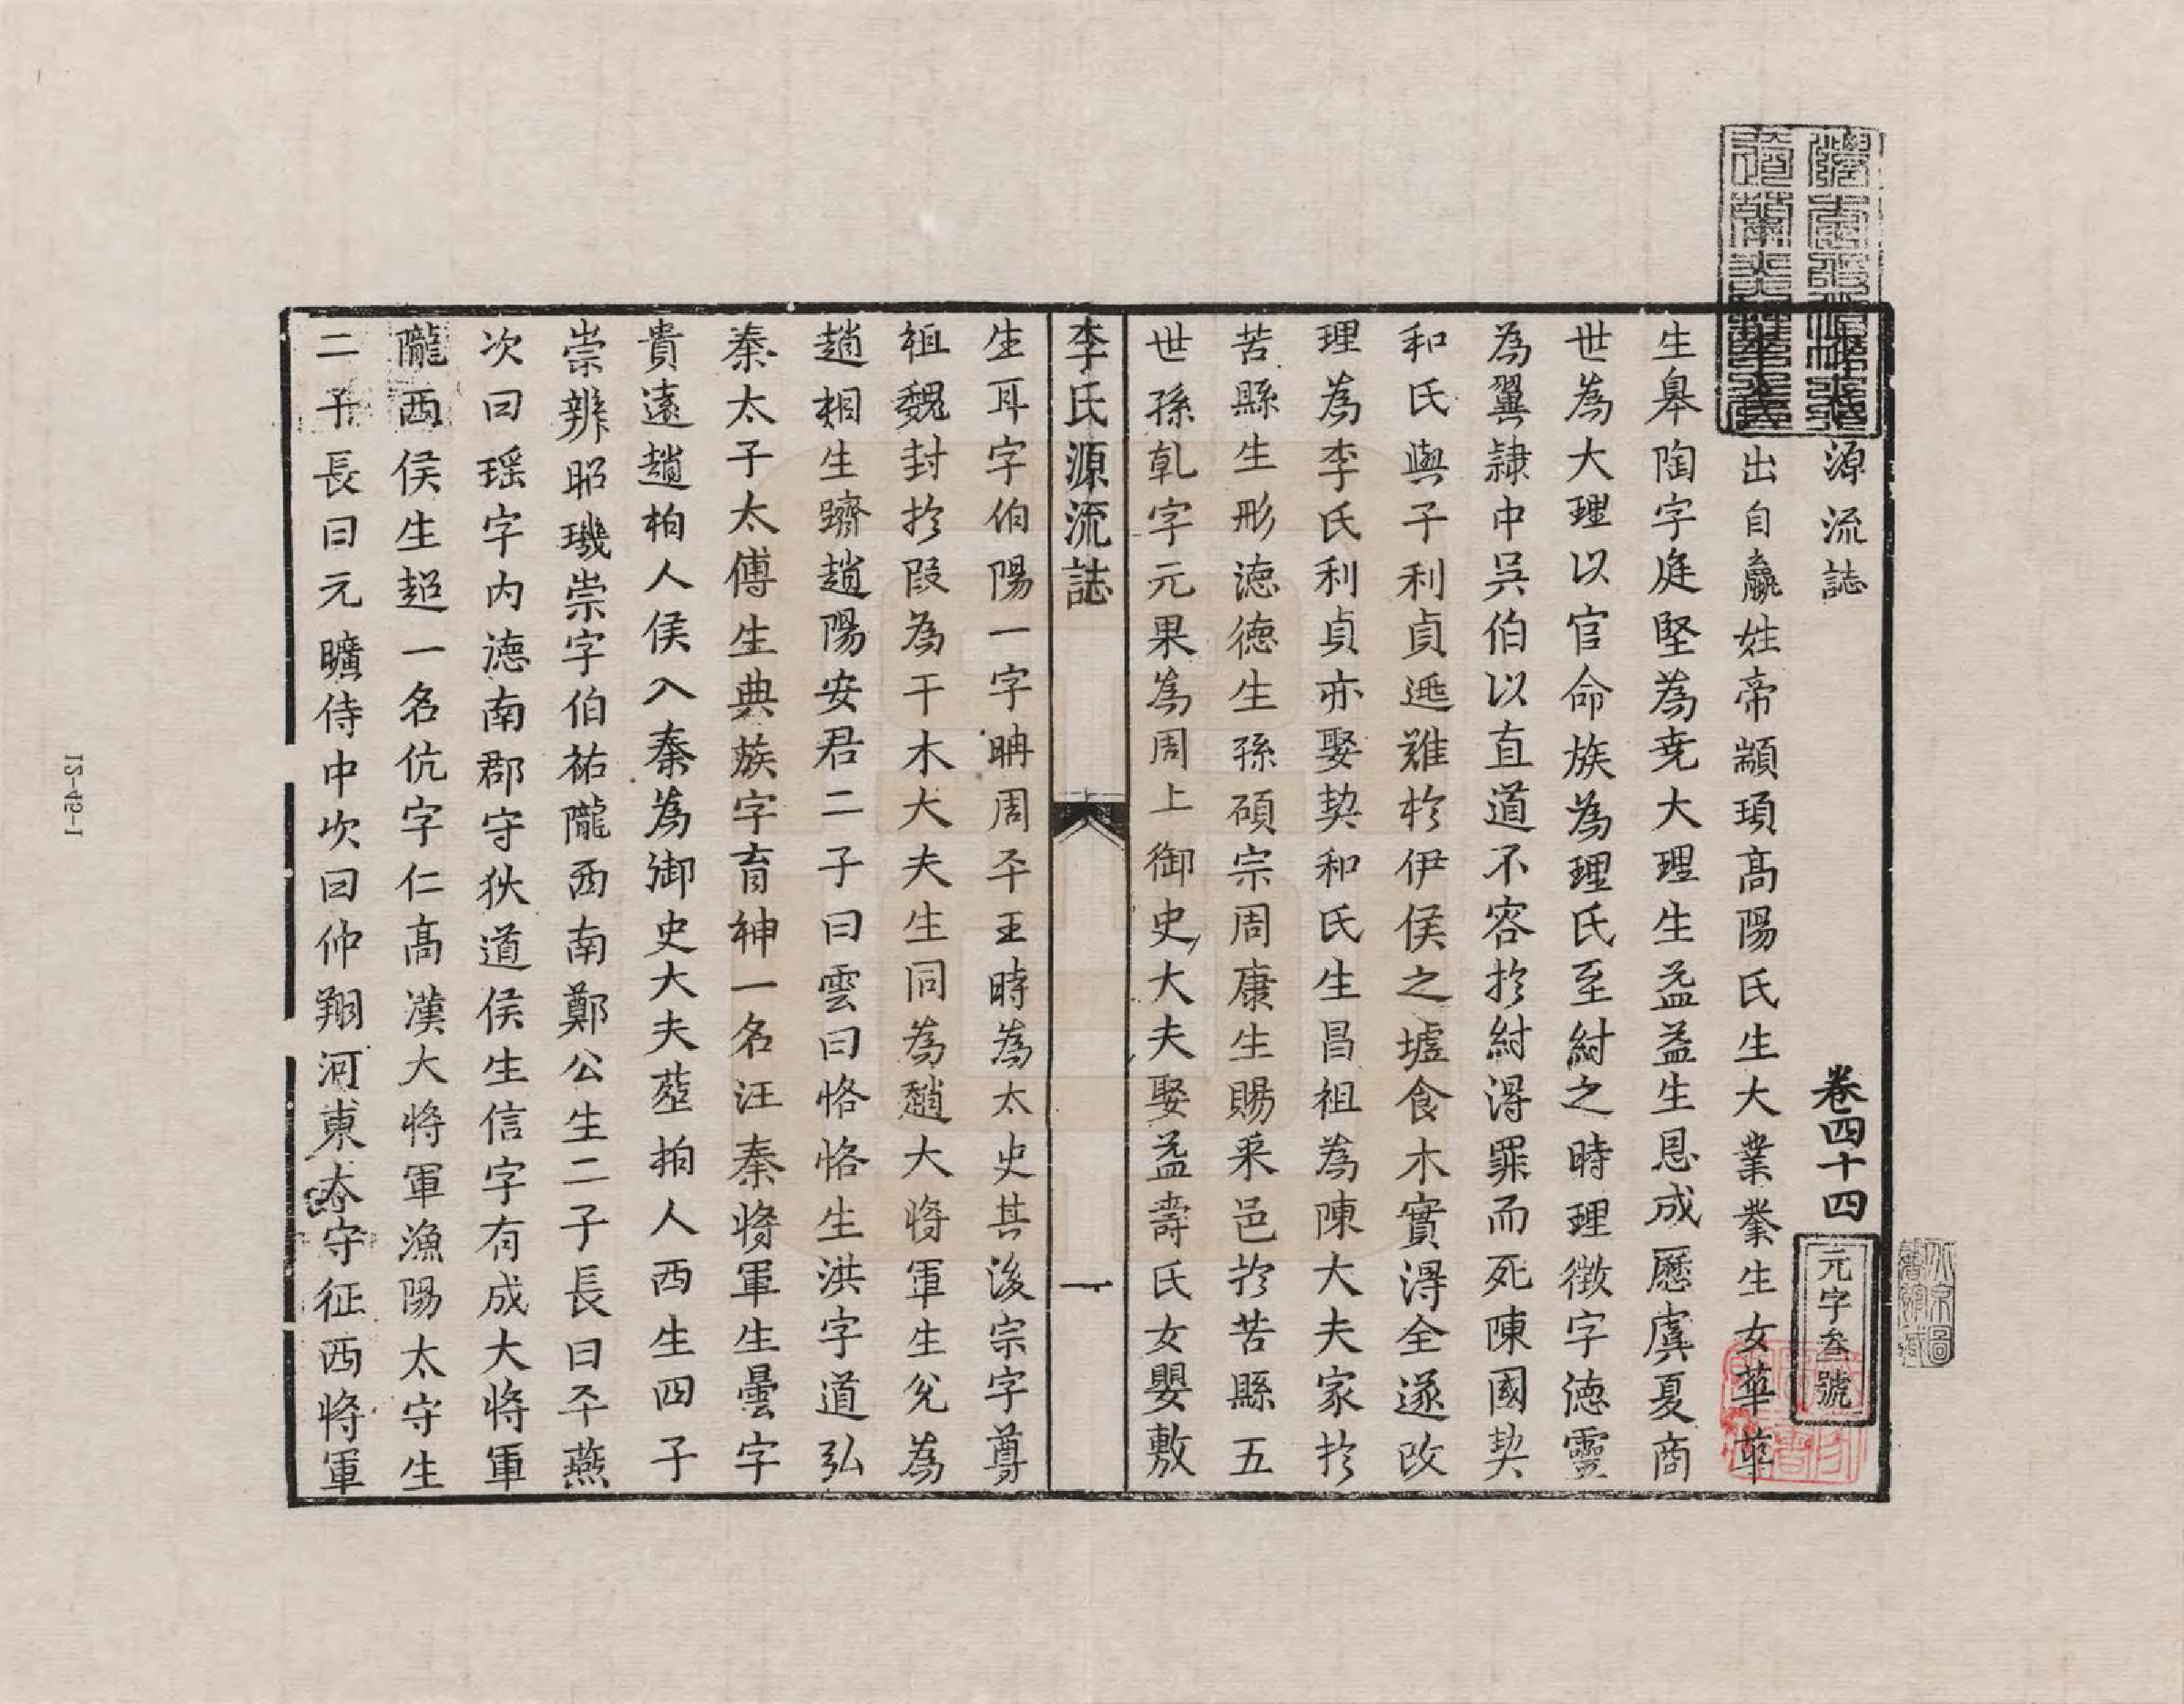 源流誌 卷四十四 元字叁號
出自嬴姓帝顓頊高陽氏生大業業生女華華
生皋陶字庭堅為尭大理生益益生恩成歷虞夏商
世為大理以官命族為理氏至紂之時理徵字徳靈
為翼隸中吳伯以直道不容扵紂得罪而死陳國契
和氏與子利貞逃難扵伊侯之墟食木實得全遂改
理為李氏利貞亦娶契和氏生昌祖為陳大夫家扵
苦縣生形徳徳生孫碩宗周康生賜采邑扵苦縣五
世孫乹字元果為周上御史大夫娶益壽氏女嬰敷
李氏源流誌 一
生耳字伯陽一字聃周平王時為太史其後宗字尊
祖魏封扵段為干木大夫生同為趙大将軍生兊為
趙相生躋趙陽安君二子曰雲曰恪恪生洪字道弘
秦太子太傅生典族字育神一名汪秦将軍生曇字
貴遠趙柏人侯入秦為御史大夫塟柏人西生四子
崇辨昭璣崇字伯祐隴西南鄭公生二子長曰平燕
次曰瑶字内徳南郡守狄道侯生信字有成大将軍
隴西侯生超一名伉字仁高漢大将軍漁陽太守生
二子長曰元曠侍中次曰仲翔河東太守征西将軍
15-42-1